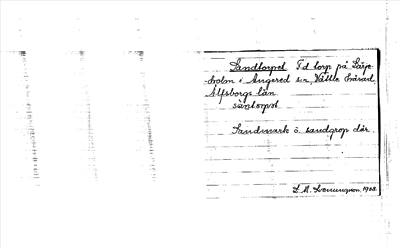 Sandtorpet Fd torp på Lärje-
holm i Angered sn, Vättle härad,
Älfsborgs län
santorpet
Sandmark o. sandgrop där.
1923.